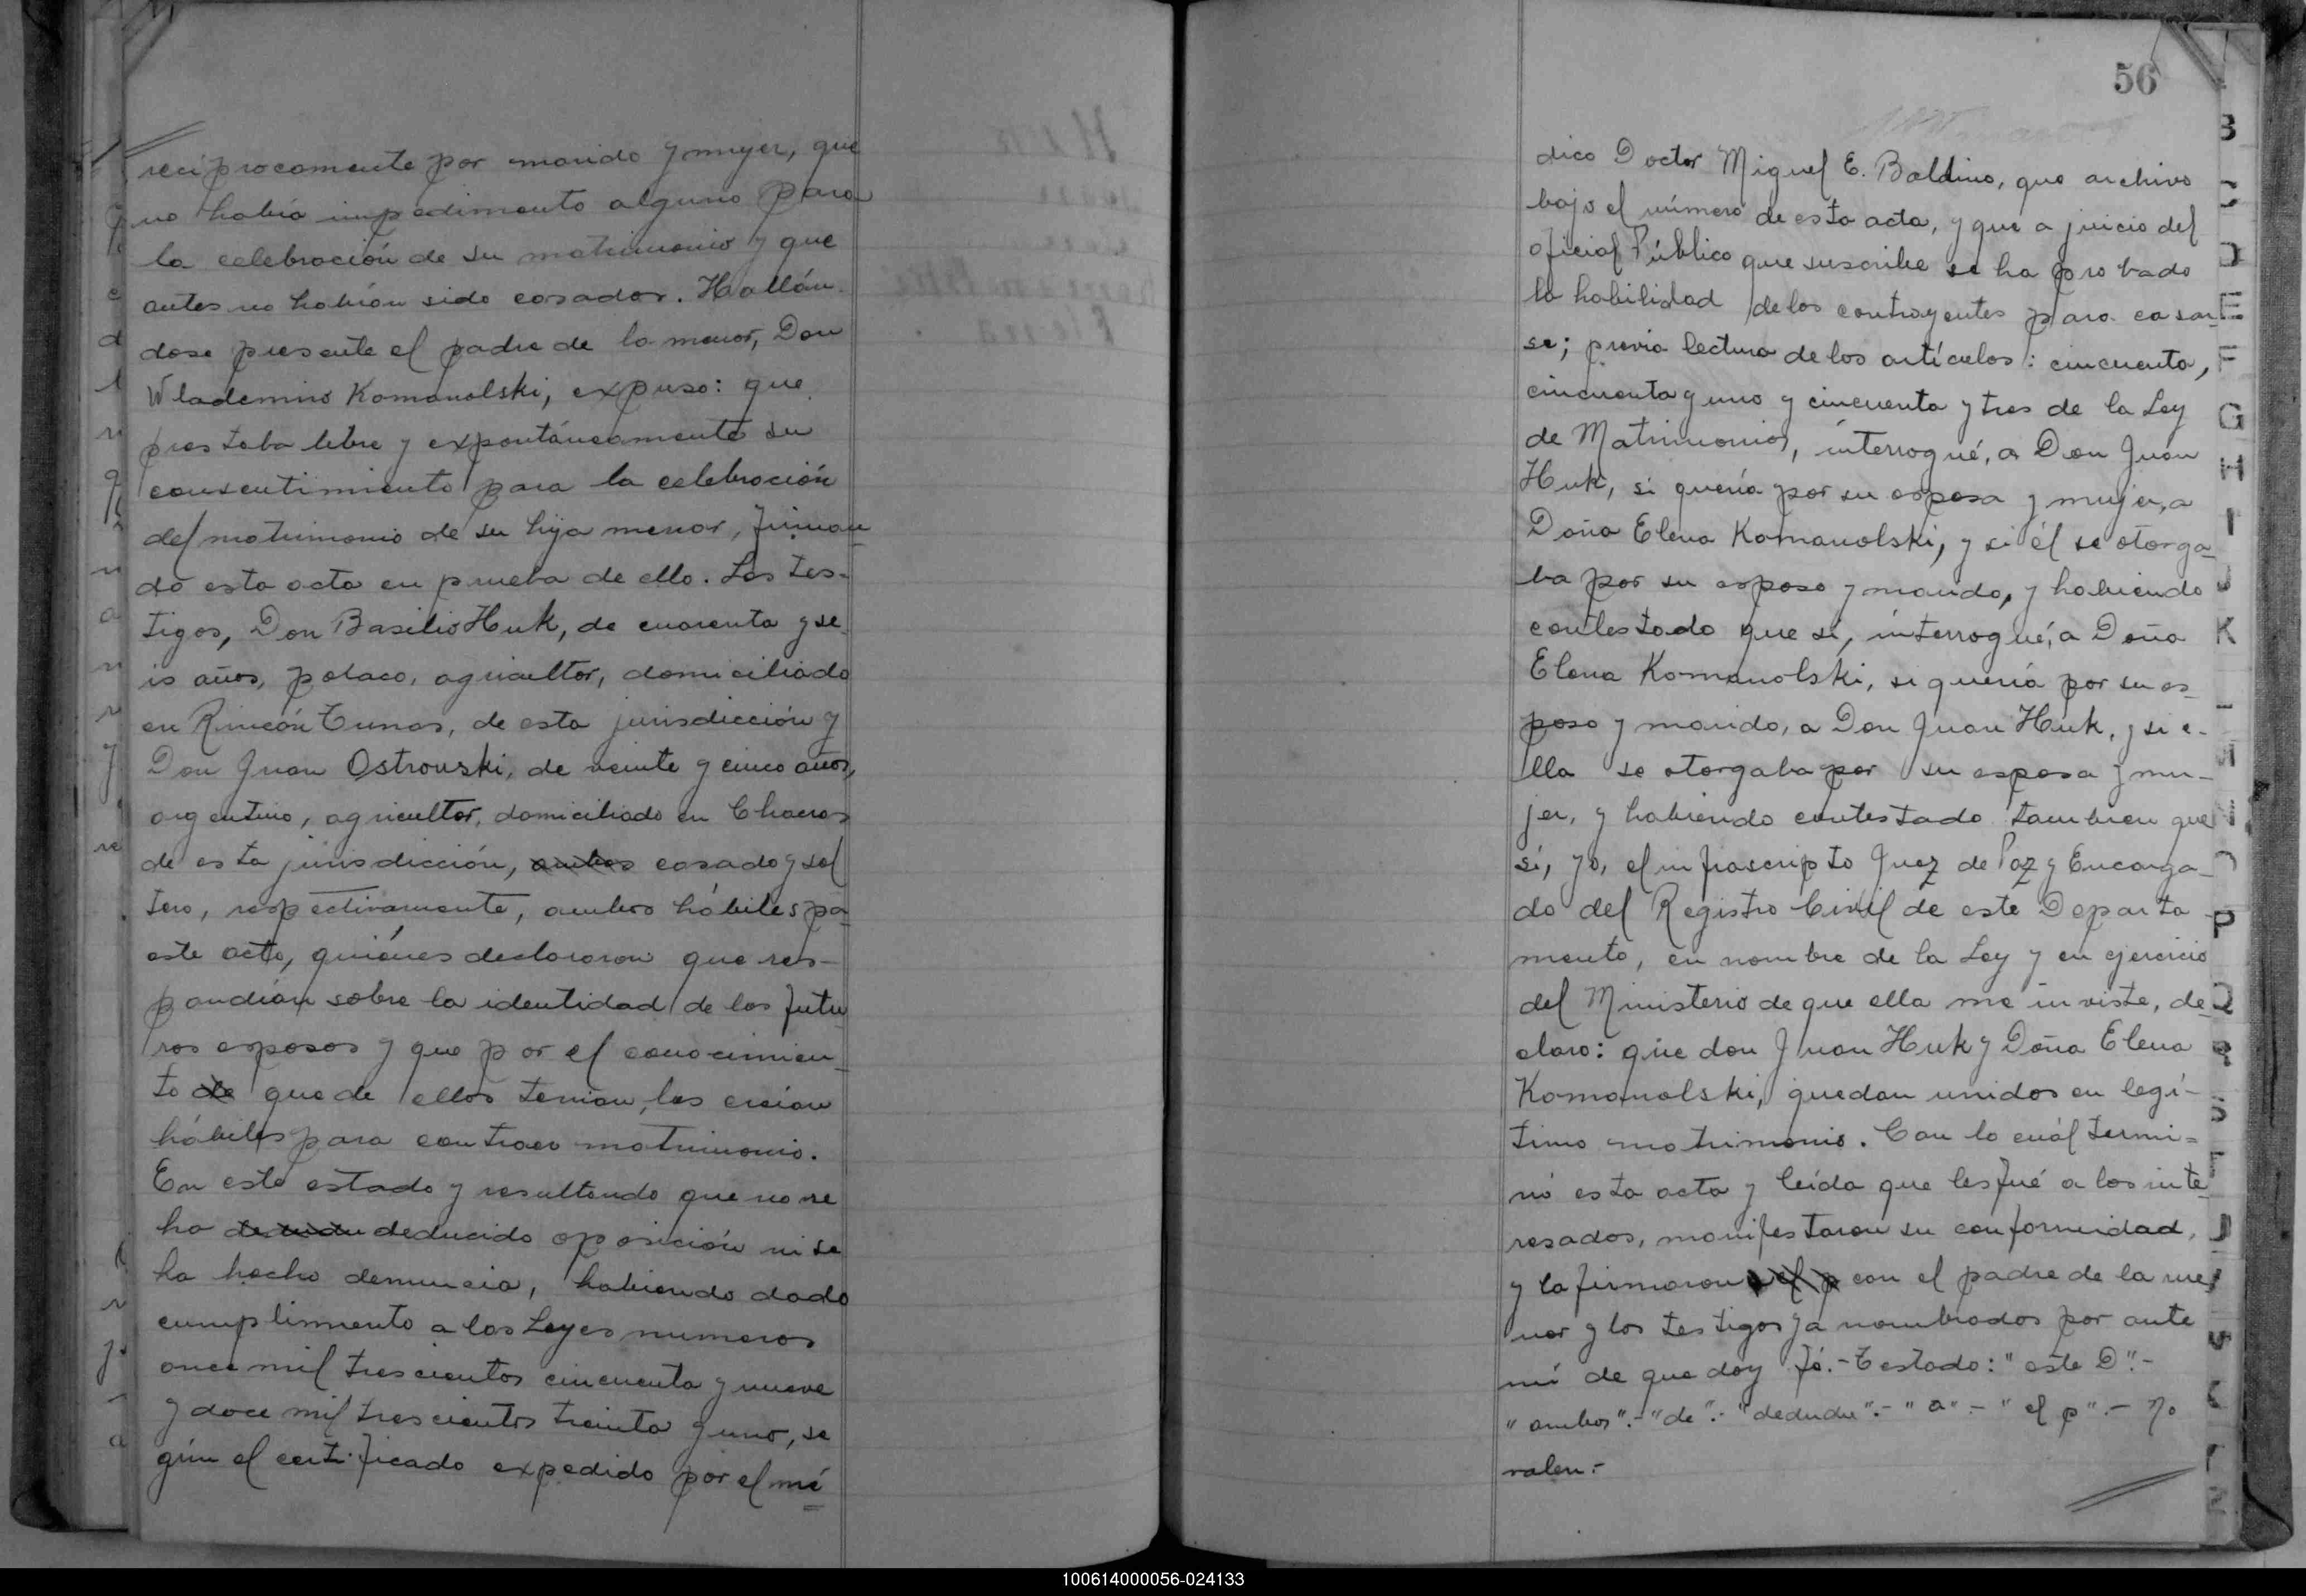 reciprocamente por marido y mujer, que
no había impedimento alguno para
la celebración de su matrimonio y que
antes no habían sido casados. Hallán
dose presente el padre de la menor, Don
Wlademiro Komanolski, expuso: que
prestaba libre y expontáneamente su
consentimiento para la celebración
del matrimonio de su hija menor, firman
do esta acta en prueba de ello. Los tes-
tigos, Don Basilio Huk, de cuarenta y se
is años, polaco, agricultor, domiciliado
en Rincón Tunas, de esta jurisdicción y
Don Juan Ostrowski, de veinte y cinco años,
argentino, agricultor, domiciliado en Chacras
de esta jurisdicción, ambos casado y sol
tero, respectivamente, ambos hábiles pa
este acto, quiénes declararon que res-
pondían sobre la identidad de los futu
ros esposos y que por el conocimien
to de que de ellos tenían, los creían
hábiles para contraer matrimonio.
En este estado y resultando que no se
ha dedudu deducido oposición ni se
ha hecho denuncia, habiendo dado
cumplimiento a las Leyes numeros
once mil trescientos cincuenta y nueve
y doce mil trescientos treinta y uno, se
gún el certificado expedido por el mé
56
dico Doctor Miguel E. Baldino, que archivo
bajo el número de esta acta, y que a juicio del
oficial Público que suscribe se ha probado
la habilidad de los contrayentes para casar
se; previa lectura de los artículos: cincuenta,
cincuenta y uno y cincuenta y tres de la Ley
de Matrimonio, interrogué, a Don Juan
Huk, si quería por su esposa y mujer, a
Doña Elena Komanolski, y si él se otorga
ba por su esposo y marido, y habiendo
contestado que sí, interrogué, a Doña
Elena Komanolski, si quería por su es
poso y marido, a Don Juan Huk, y si e-
lla se otorgaba por su esposa y mu-
jer, y habiendo contestado tambien que
sí, yo, el infrascripto Juez de Paz y Encarga
do del Registro Civil de este Departa
mento, en nombre de la Ley y en ejercicio
del Ministerio de que ella me inviste, de
claro: que don Juan Huk y Doña Elena
Komanolski, quedan unidos en legí-
timo matrimonio. Con lo cuál termi=
nó esta acta y leída que les fué a los inte
resados, manifestaron su conformidad,
y la firmaron a el p con el padre de la me
nor y los testigos ya nombrados por ante
mí de que doy fé.- Testado: "este D".-
"ambos".- "de".- "dedudu".- "a".- "el p".- No
valen.-
100614000056-024133